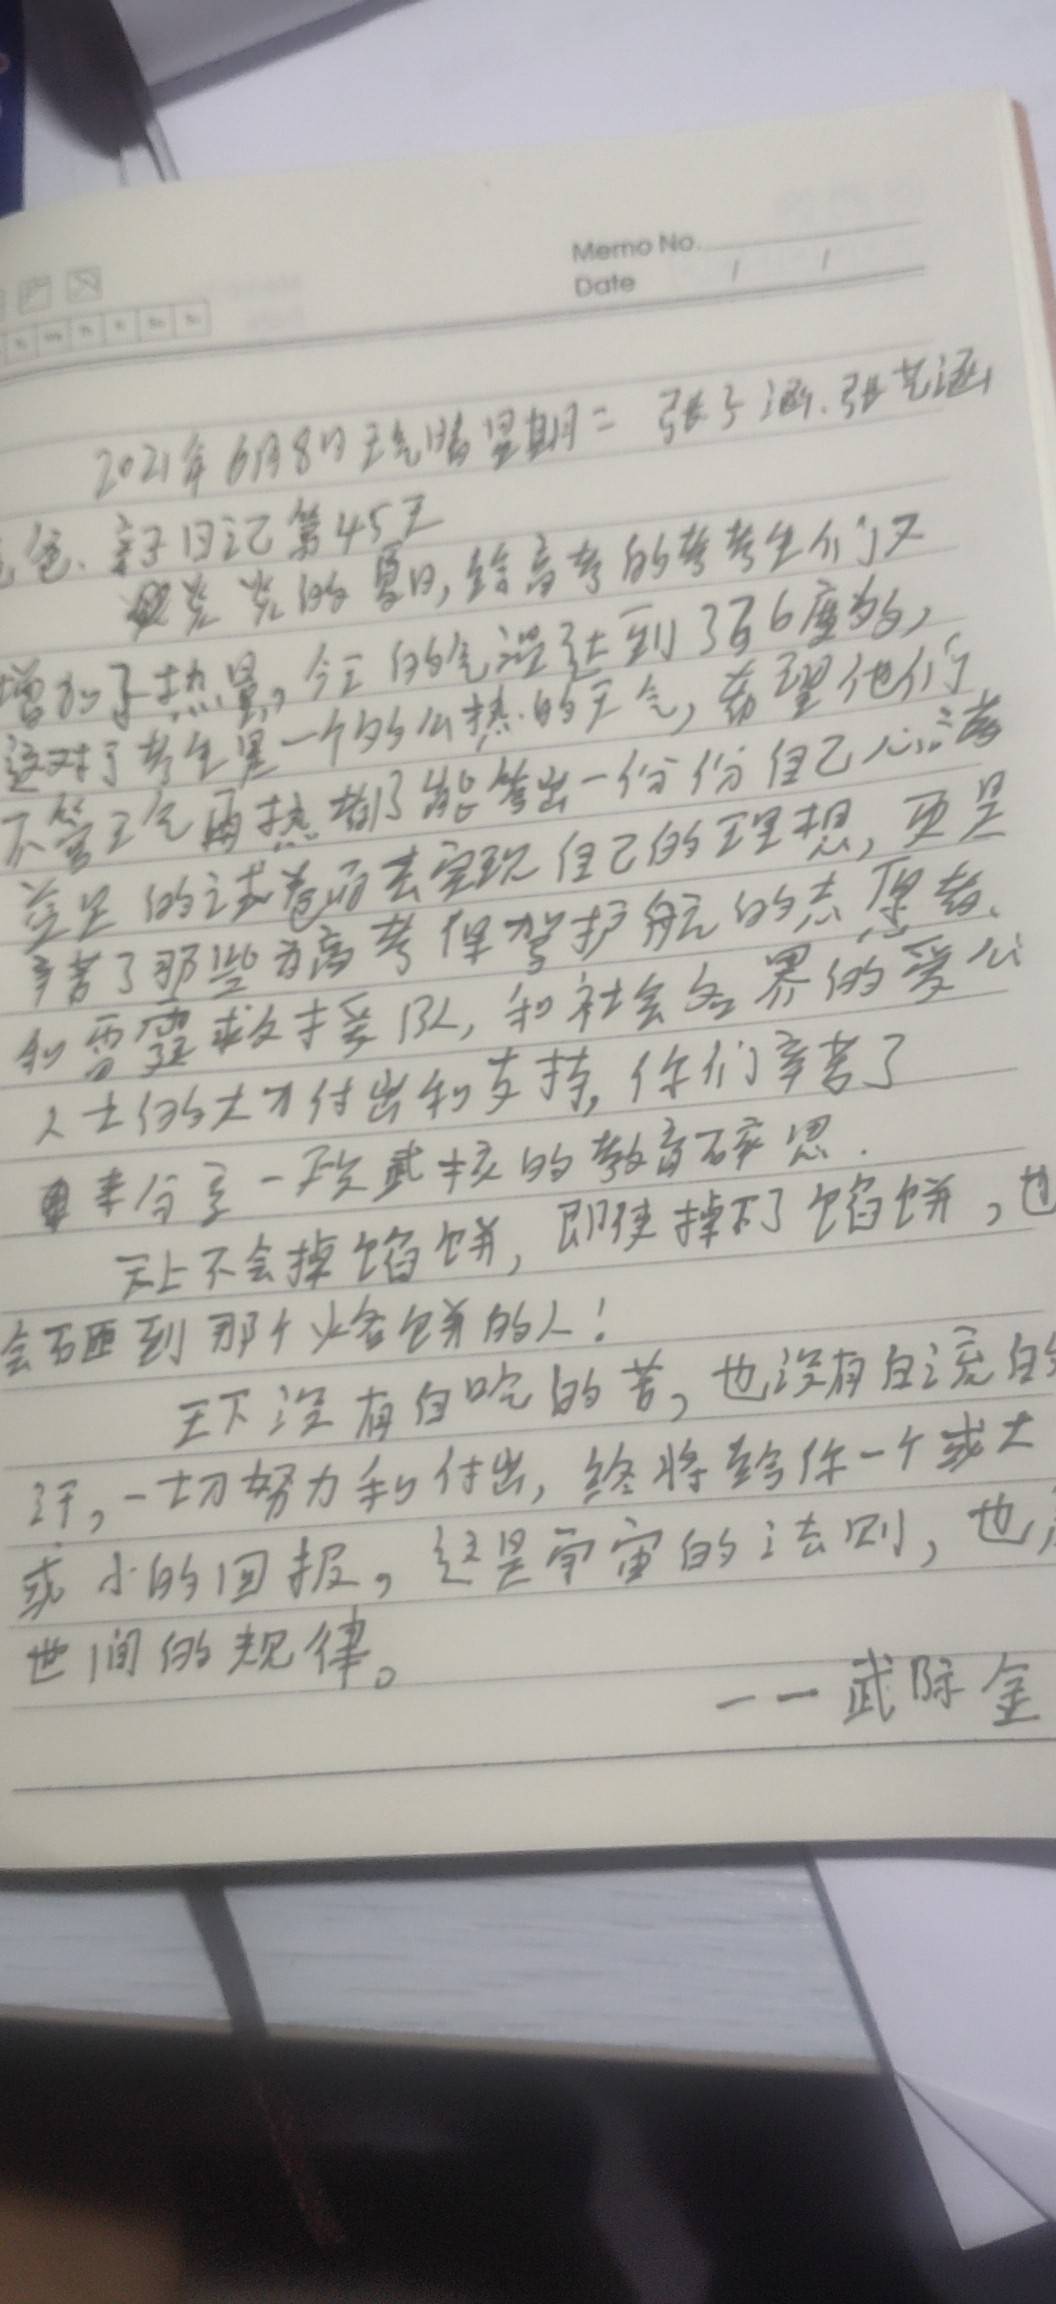 Memo No.
Date
2021年6月8日天气晴星期二 张子涵.张艺涵
爸.亲子日记第45天
炎炎的夏日,给高考的考生们又
增加了热量,今天的气温达到了36度多,
这对了考生是一个的么热的天气,希望他们
不管天气再热都了能答出一份份自己心满
意足的试卷而去实现自己的理想,更是
辛苦了那些为高考保驾护航的志愿者、
和雷霆救援队,和社会各界的爱心
人士们的大力付出和支持,你们辛苦了
来分享一段武校的教育碎思.
天上不会掉馅饼,即使掉下了馅饼,也
会砸到那个烙饼的人!
天下没有白吃的苦,也没有白流的
汗,一切努力和付出,终将给你一个或大
或小的回报。这是宇宙的法则,也
世间的规律。
——武际金